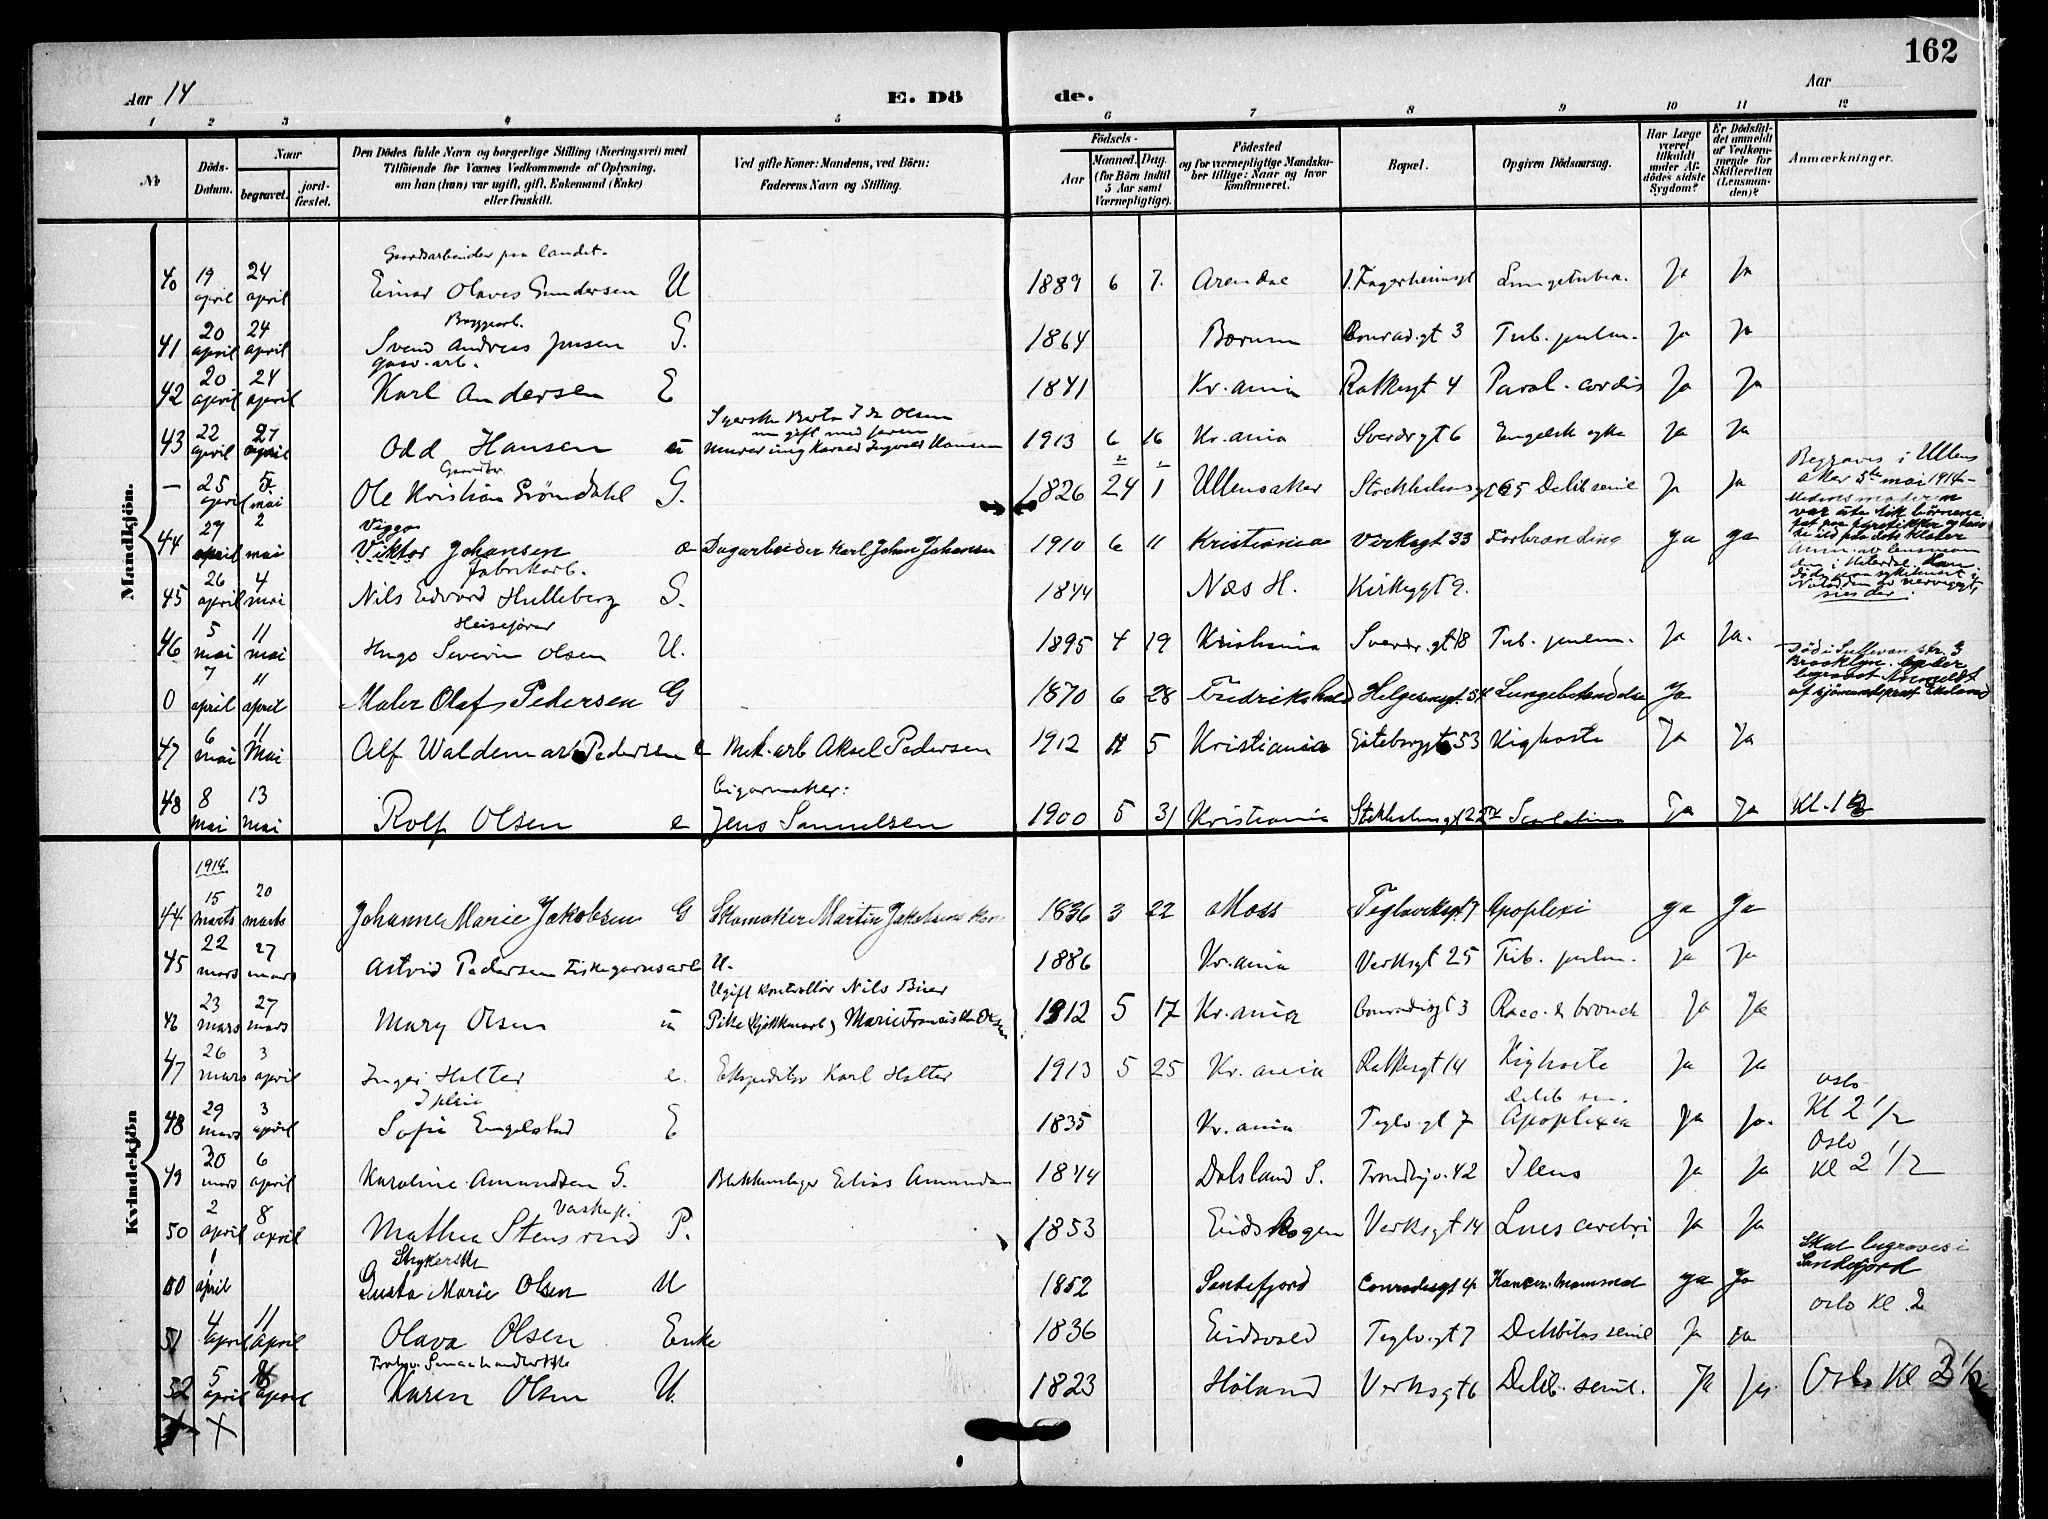 162
Aar 14
E. Dö de.
Aar
1 2 3 4 5 6 7 8 9 10 11 12
No
Döds-Datum.
Naar
begravet.
jord-fæstet.
Den Dödes fulde Navn og borgerlige Stilling (Næringsvei) med
Tilföiende for Voxnes Vedkommende af Oplysning,
om han (hun) var ugift, gift, Enkemand (Enke)
eller fraskilt.
Ved gifte Koner: Mandens, ved Börn:
Faderens Navn og Stilling.
Födsels-
Aar
Maaned. Dag.
(for Börn indtil
5 Aar samt
Værnepligtige).
Födested
og for værnepligtige Mandskaber tillige: Naar og hvor
konfirmeret.
Bopæl.
Opgiven Dödsaarsag.
Har Læge
været
tilkaldt
under Afdödes sidste
Sygdom?
Er Dödsfaldet anmeldt
af Vedkommende for
Skifteretten
(Lensmanden)?
Anmærkninger.
Mandkjön.
Gaardsarbeider paa landet.
40 19 april 24 april Einar Olaves Gundersen U 1889 6 7. Arendal Lungetuberk. Ja Ja
Byggearb.
41 20 april 24 april Svend Andreas Jensen G. 1864 Bærum Conrad.gt 3 Tub. pulm. Ja Ja
gasv. arb.
42 20 april 24 april Karl Andersen E 1841 Kr.ania Ratkesgt 4 Paral. cordis Ja Ja
43 22 april 27 april Odd Hansen u Syerske Berta Olsen
nu gift med faren
Ingvald Hansen 1913 6 16 Kr.ania Sverdr gt 6 Engelsk syke Ja Ja
Gaardbr.
— 25 april 5 mai Ole Kristian Gröndahl G. 1826 24 1 Ullensaker Stockholmsgt Debil. senil Ja Ja Begraves i Ullensaker 5te mai 1914
Viggo
44 27 april 2 mai Viktor Johansen e Dagarbeider Karl Johan Johansen 1910 6 11 Kristiania Verksgt 33 Forbrænding ja ja
Fabrikarb.
45 26 april 4 mai Nils Edvard Hulleberg G. 1844 Næs H. Kirkegt 9.
Heisefører
46 5 mai 11 mai Hugo Severin Olsen U. 1895 4 19 Kristiania Sverdr.gt 18 Tub. pulm. Ja Ja.
0 7 april 11 april Maler Olaf Pedersen G 1870 6 28 Fredrikshald Helgesensgt. Lungebetændelse Ja Död i Sullivan str. 3
Brooklyn.
47 6 mai 11 Mai Alf Waldemar Pedersen e Mek. arb Aksel Pedersen 1912 5 Kristiania Göteborggt 53 Kighoste Ja Ja
Cigarmaker:
48 8 mai 13 mai Rolf Olsen e Jens Samuelsen 1900 5 31 Kristiania Stokholmsgt Scarlatina Ja Ja
Kvindekjön
1914
44 15 marts 20 marts Johanne Marie Jakobsen G Skomaker Martin Jakobsens 1836 3 22 Moss Teglverksgt 7 Apoplexi ja Ja
45 22 mars 27 mars Astrid Pedersen Fiskegarnsarb U. 1886 Kr.ania Verksgt 25 Tub. pulm. Ja Ja
Ugift kontrollör Nils
46 23 mars 27 mars Mary Olsen u Pike Marie Franciska Olsen 1912 5 17 Kr.ania Conradisgt 3 Racc. & bronch Ja Ja
47 26 mars 3 april Inger Holter e. Ekspeditör Karl Holter 1913 5 25 Kr.ania Ratkesgt 14 Kighoste Ja Ja
I pleie
48 29 mars 3 april Sofie Engelstad E 1835 Kr.ania Teglv.gt 7 Debil. sen.
Apoplexia Ja Ja. Oslo
Kl 2 1/2
49 30 mars 6 april Karoline Amundsen G. Blikkenslager Elias Amundsen 1844 Dalsland S. Trondhjv. 42 Ileus Ja Ja Oslo
Kl 2 1/2
50 2 april 8 april Mathea Stensrud P. 1853 Eidskogen Verksgt 14 Lues cerebri Ja Ja
Strykerske
00 1 april Gusta Marie Olsen U 1852 Sandefjord Conradisgt 4 Kancer. mammæ ja Ja Skal begraves i
Sandefjord
51 4 april 11 april Olava Olsen Enke 1836 Eidsvold Teglv.gt 7 Debilitas senil Ja Ja Oslo Kl. 2
52 5 april april Karen Olsen U. 1823 Höland Verksgt 6 Debil. senil. Ja Ja Oslo Kl